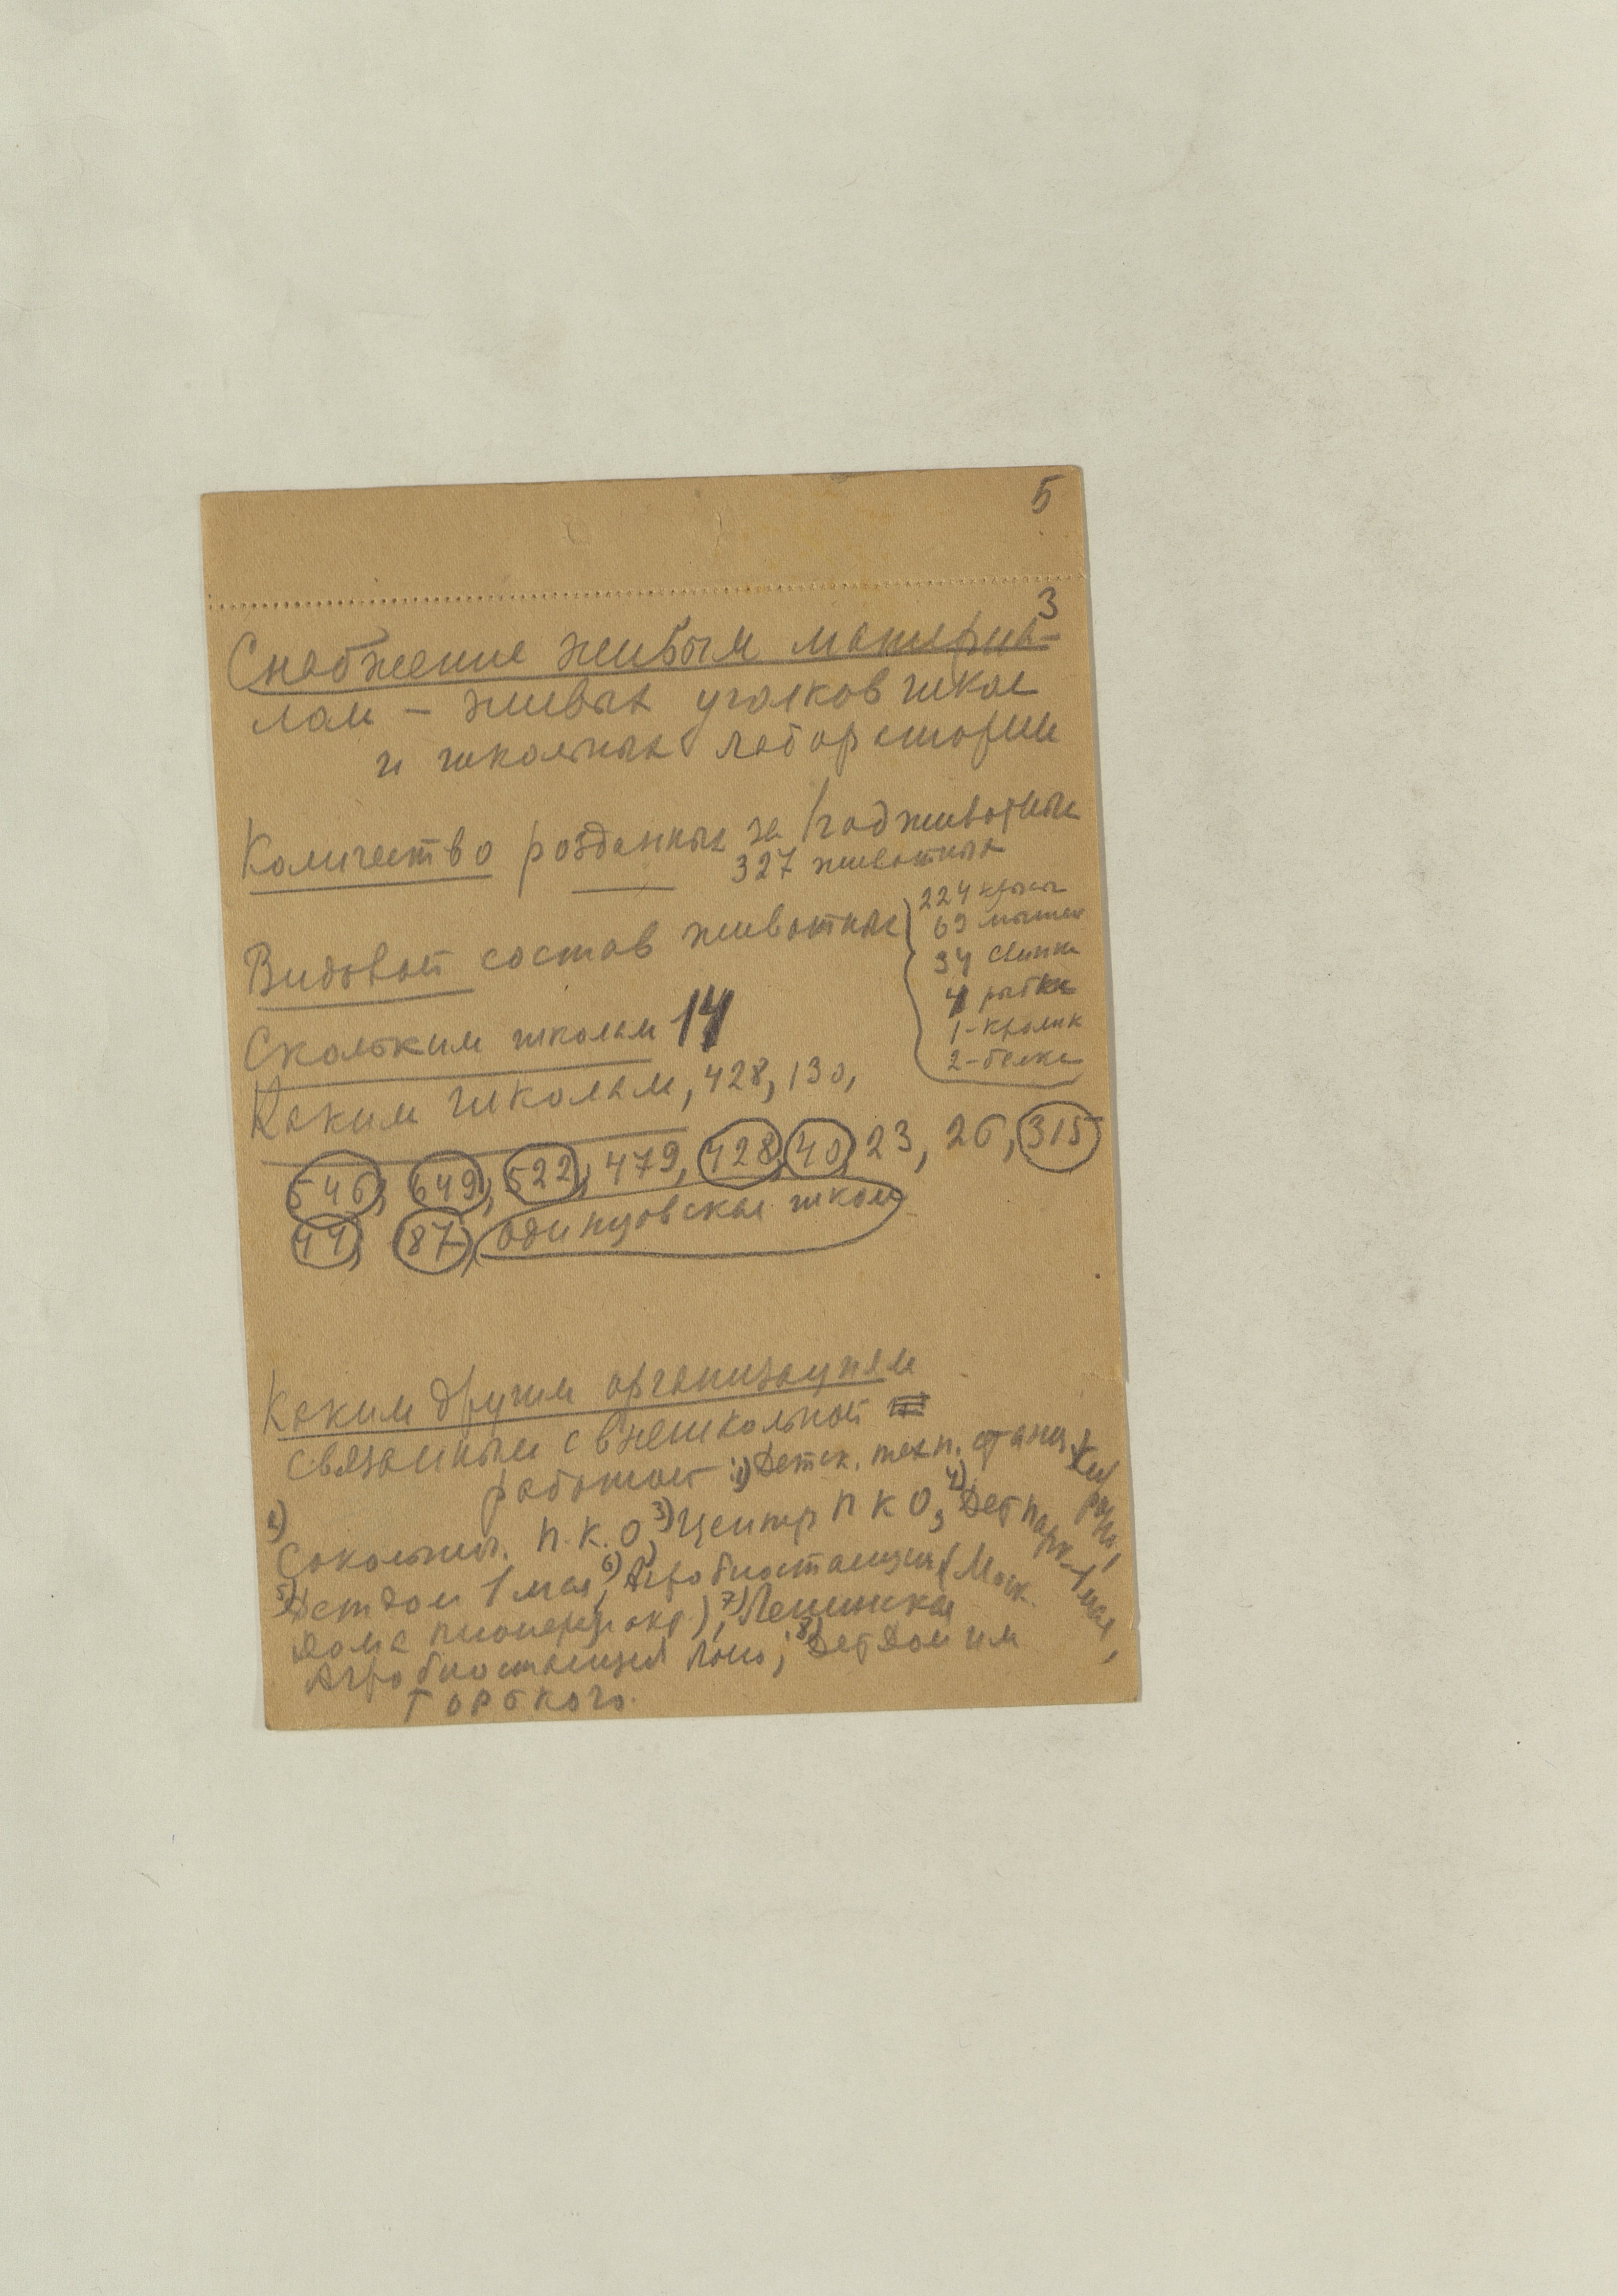 5
3
Снабжение живым материа-
лом – живых уголков школ
и школьных лабораторий
Количество розданных за 1 год животных
327 животных
Видовой состав животных
224 крысы
69 мышек
34 свинки
4 рыбки
1-кролик
2-белки
Скольким школам 14
Каким школам, 428, 130,
546, 649, 522, 479, 428, 40, 23, 26, 315
44, 87, Одинцовская школа
Каким другим организациям
связанным с внешкольной
работой: 1) Детск. техн. станц.
2) Сокольнич. П.К.О, 3) Центр П К О, 4) Детпарк – 1 мая,
5) Детдом 1 мая, 6) Агробиостанция (Моск.
дома пионеров окр.), 7) Ленинская
Агробиостанция Лоно; 8) Дет дом им
Горького.